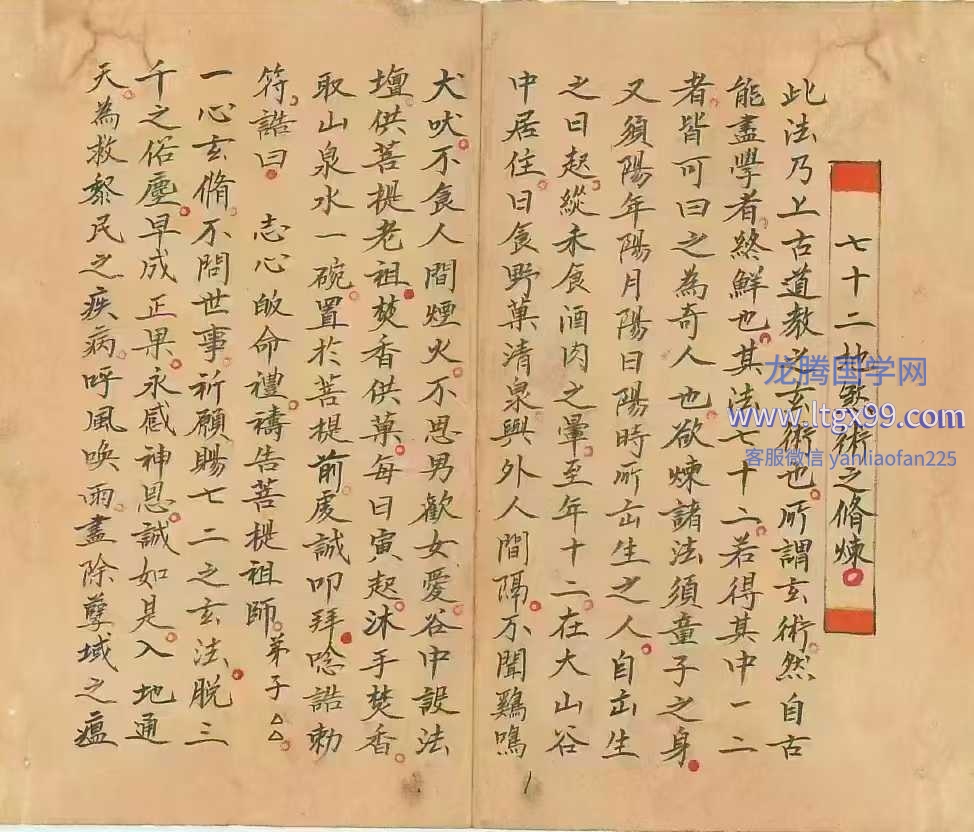 七十二地煞術之脩煉
此法乃上古道教之玄術也所謂玄術然自古
能盡學者終鮮也其法七十二若得其中一二
者皆可曰之為奇人也欲煉諸法須童子之身
又須陽年陽月陽日陽時所出生之人自出生
之日起縱未食酒肉之暈至年十二在大山谷
中居住日食野菓清泉與外人間隔不聞鷄鳴
犬吠不食人間煙火不思男歡女愛谷中設法
壇供菩提老祖焚香供菓每日寅起沐手焚香
取山泉水一碗置於菩提前虔誠叩拜唸誥勅
符誥曰 志心皈命禮禱告菩提祖師弟子△△
一心玄脩不問世事祈願賜七二之玄法脫三
千之俗塵早成正果永感神恩誠如是入地通
天為救黎民之疾病呼風喚雨盡除孽域之瘟
1
龙腾国学网
www.ltgx99.com
客服微信 yanliaofan225